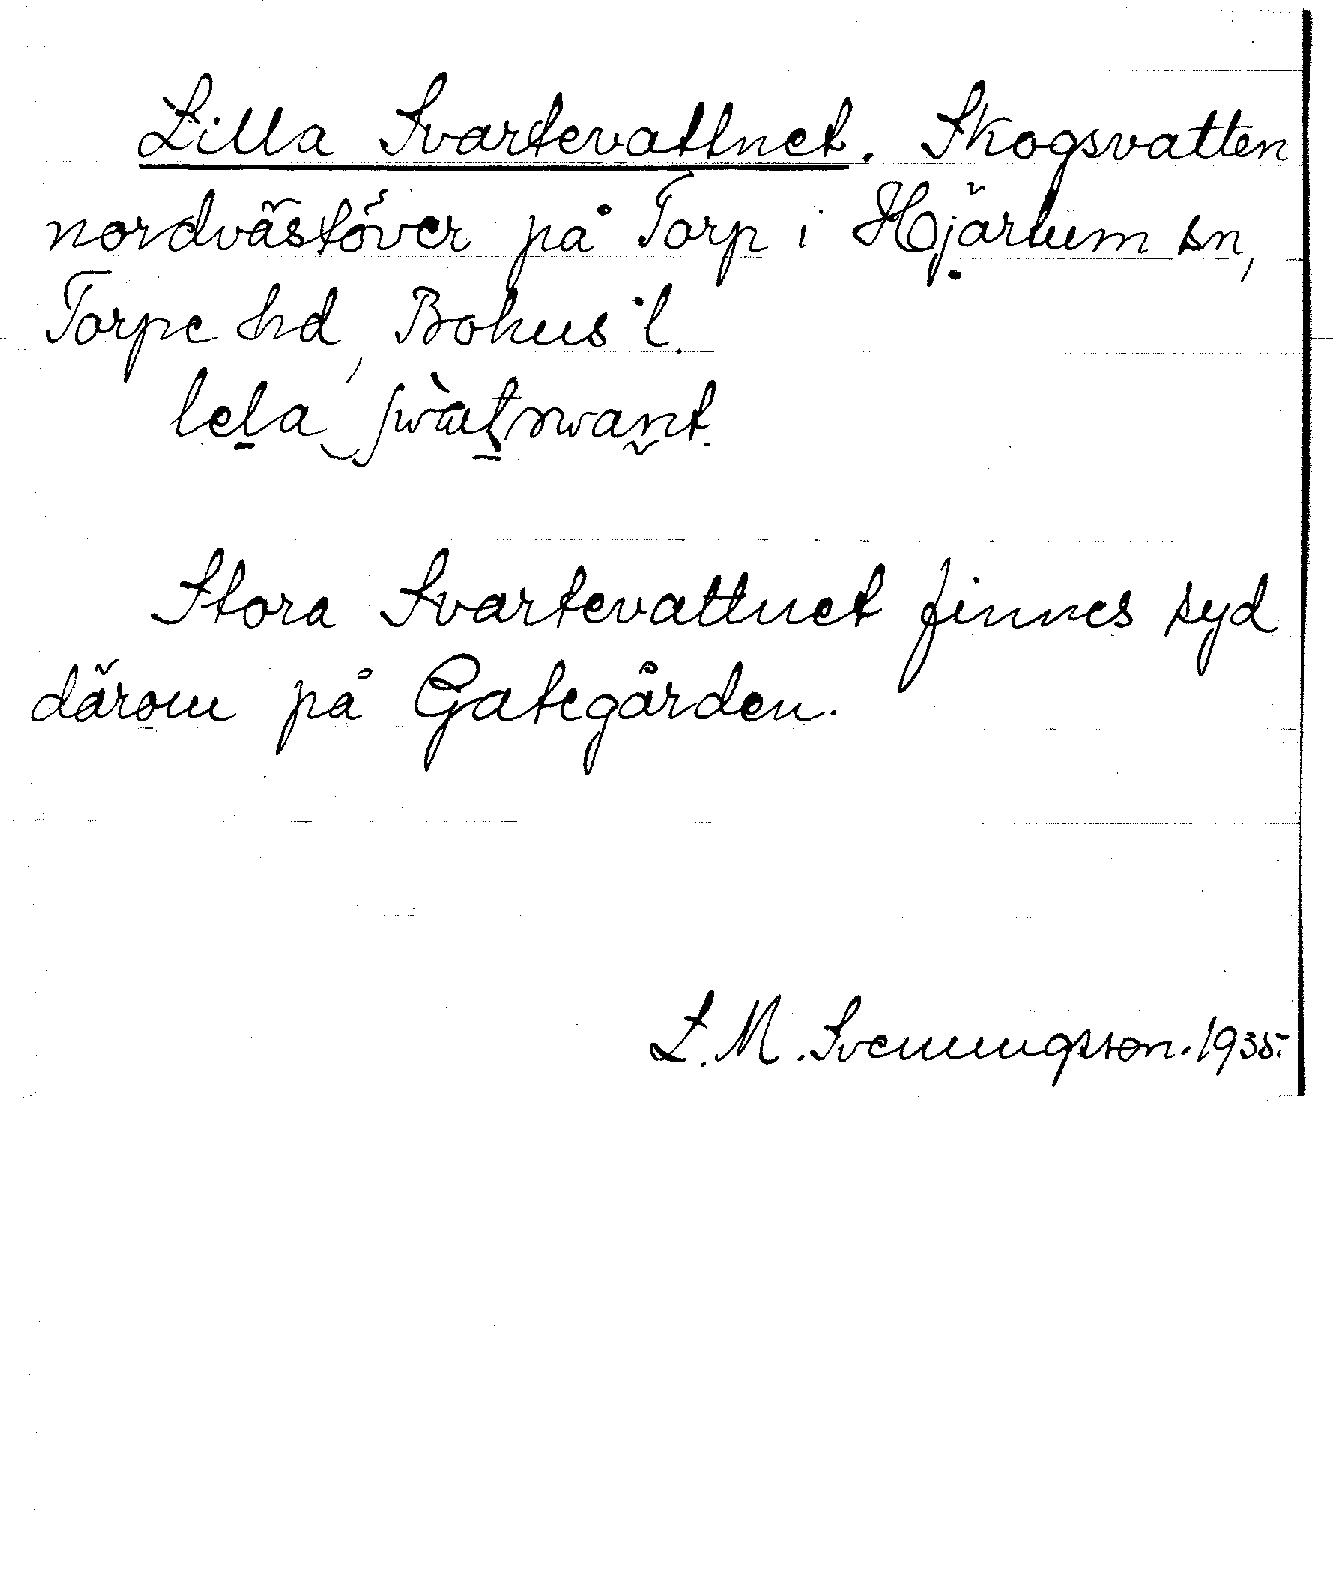 Lilla Svartevattnet. Skogsvatten
nordvästöver på Torp i Hjärtum sn,
Torpe hd, Bohus l.
Stora Svartevattnet finnes syd
därom på Gategården.
L. M. Svenungsson. 1935.